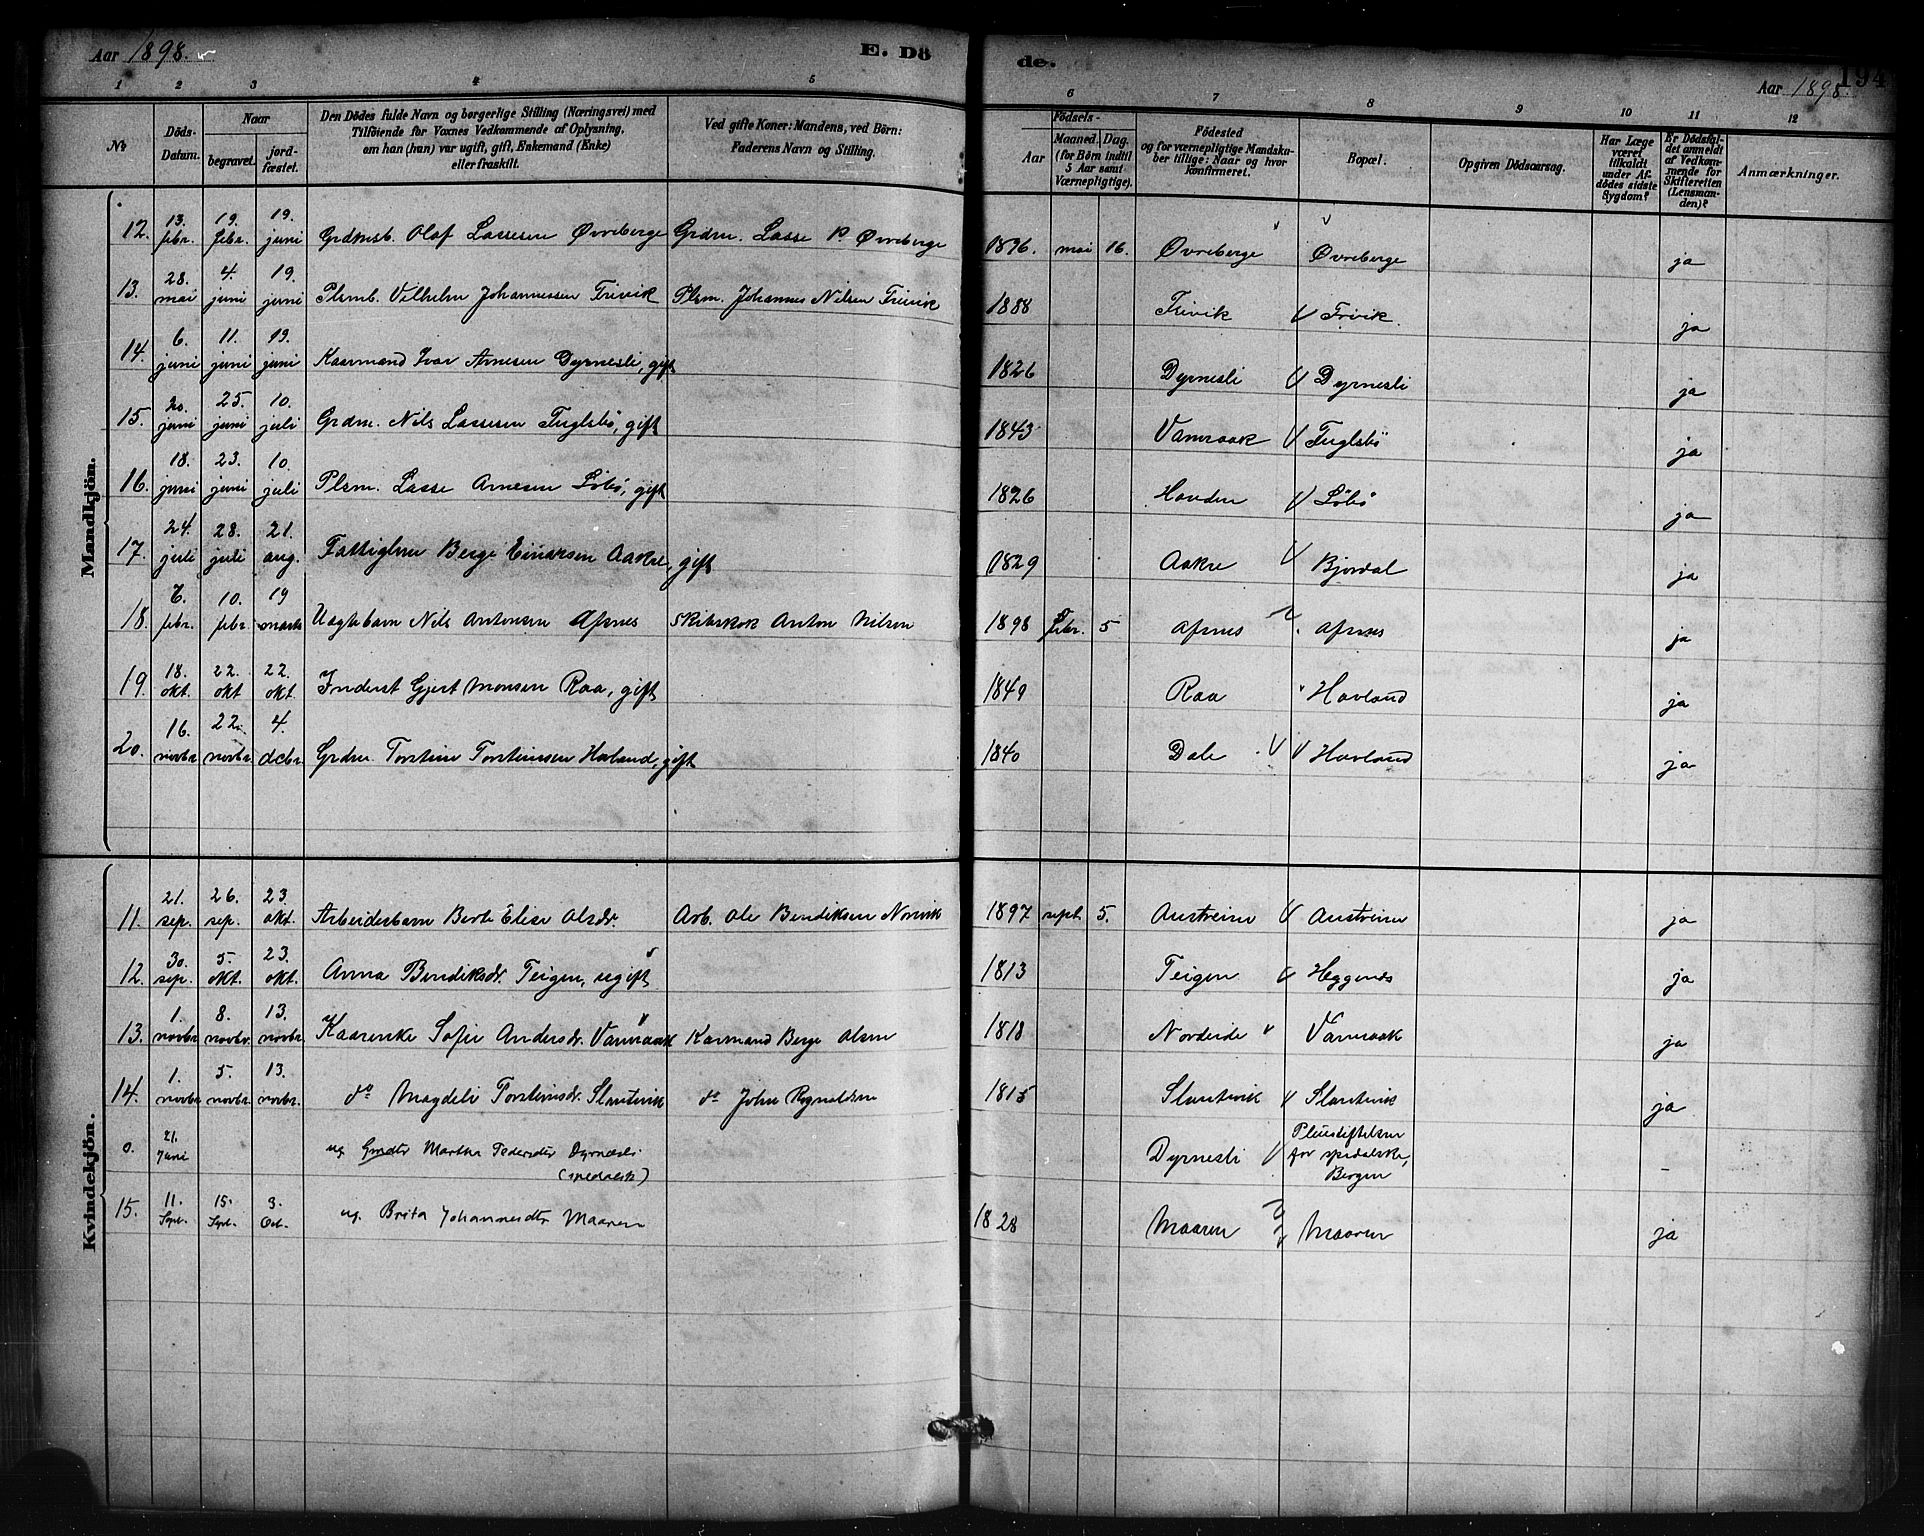 Aar 1898. E. Dö de. Aar 1898 194
1 2 3 4 5 6 7 8 9 10 11 12
No
Döds-Datum.
Naar
begravet.
jordfæstet.
Den Dödes fulde Navn og borgerlige Stilling (Næringsvei) med
Tilföiende for Voxnes Vedkommende af Oplysning,
om han (hun) var ugift, gift, Enkemand (Enke)
eller fraskilt.
Ved gifte Koner: Mandens, ved Börn:
Faderens Navn og Stilling.
Födsels-
Aar
Maaned. Dag.
(for Börn indtil
5 Aar samt
Værnepligtige).
Födested
og for værnepligtige Mandskaber tillige: Naar og hvor
konfirmeret.
Bopæl.
Opgiven Dödsaarsag.
Har Læge
været
tilkaldt
under Afdödes sidste
Sygdom?
Er Dödsfaldet anmeldt
af Vedkommende for
Skifteretten
(Lensmanden)?
Anmærkninger.
Mandkjön.
12. 13. febr. 19. febr. 19. juni Grdmsb. Olaf Lassesen Øvreberge Grdm. Lasse P. Øvreberge 1896. mai 16. Øvreberge Øvreberge ja
13. 28. mai 4. juni 19. juni Plsmb. Vilhelm Johannessen Trivik Plsm. Johannes Nilsen Trivik 1888 Trivik Trivik. ja
14. 6. juni 11. juni 19. juni Kaarmand Ivar Arnesen Dyrnesli, gift 1826 Dyrnesli Dyrnesli ja
15. 20. juni 25. juni 10. juli Grdm. Nils Lassesen Fuglsbö, gift 1843 Vamraak Fuglsbö ja
16. 18. juni 23. juni 10. juli Plsm. Lasse Arnesen Löbö, gift 1826 Hovden Løbö ja
17. 24. juli 28. juli 21. aug. Fattiglem Berge Einarsen Aakre, gift 1829 Aakre Bjordal ja
18. 6. febr. 10. febr. 19 marts Uægtebarn Nils Antonsen Afsnes Skibskok Anton Nilsen 1898 febr. 5 Afsnes Afsnes ja
19. 18. okt. 22. okt 22. okt. Inderst Gjert Monsen Raa, gift 1849 Raa Havland ja
20. 16. novbr. 22. novbr. 4. decbr. Grdm. Torstein Torsteinsen Havland, gift 1840 Dale Havland ja
Kvindekjön.
11. 21. sep. 26. sep. 23. okt. Arbeidersbarn Berte Elise Olsdr. Arb. Ole Bendiksen Norevik 1897 sept. 5. Austreim Austreim ja
12. 30. sep. 5. okt. 23. okt. Anna Bendiksdr. Teigen, ugift 1813 Teigen Heggenes ja
13. 1. novbr 8. novbr. 13. novbr. Kaarenke Sofie Andersdr. Vamraak Karmand Berge Olsen 1818 Nordeide Vamraak ja
14. 1. novbr 5. novbr. 13. novbr. do Magdeli Torsteinsdr. Slantevik do John Rognaldsen 1815 Slantevik Slantevik ja
0. 21. Juni ug Gmdtr Martha Pedersdtr Dyrnesli (spedalsk) Dyrnesli Pleiestiftelsen for spedalske, Bergen -
15. 11. Sept. 15. Sept. 3. Oct. ug. Brita Johannesdtr Maaren 1828 Maaren Maaren ja